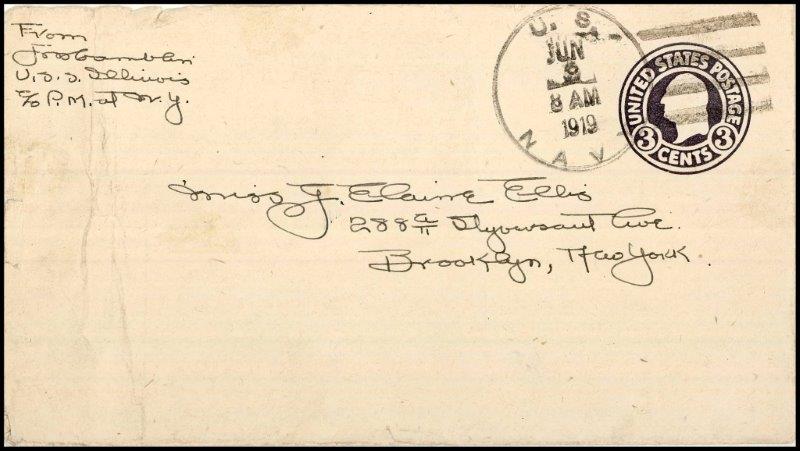 From
U.S.S. Illinois
c/o P.M. at N.Y.
U. S.
JUN
8 AM
1919
NAVY
UNITED STATES POSTAGE
3 CENTS 3
Miss J. Elaine Ellis
288 Ave.
Brooklyn, New York.